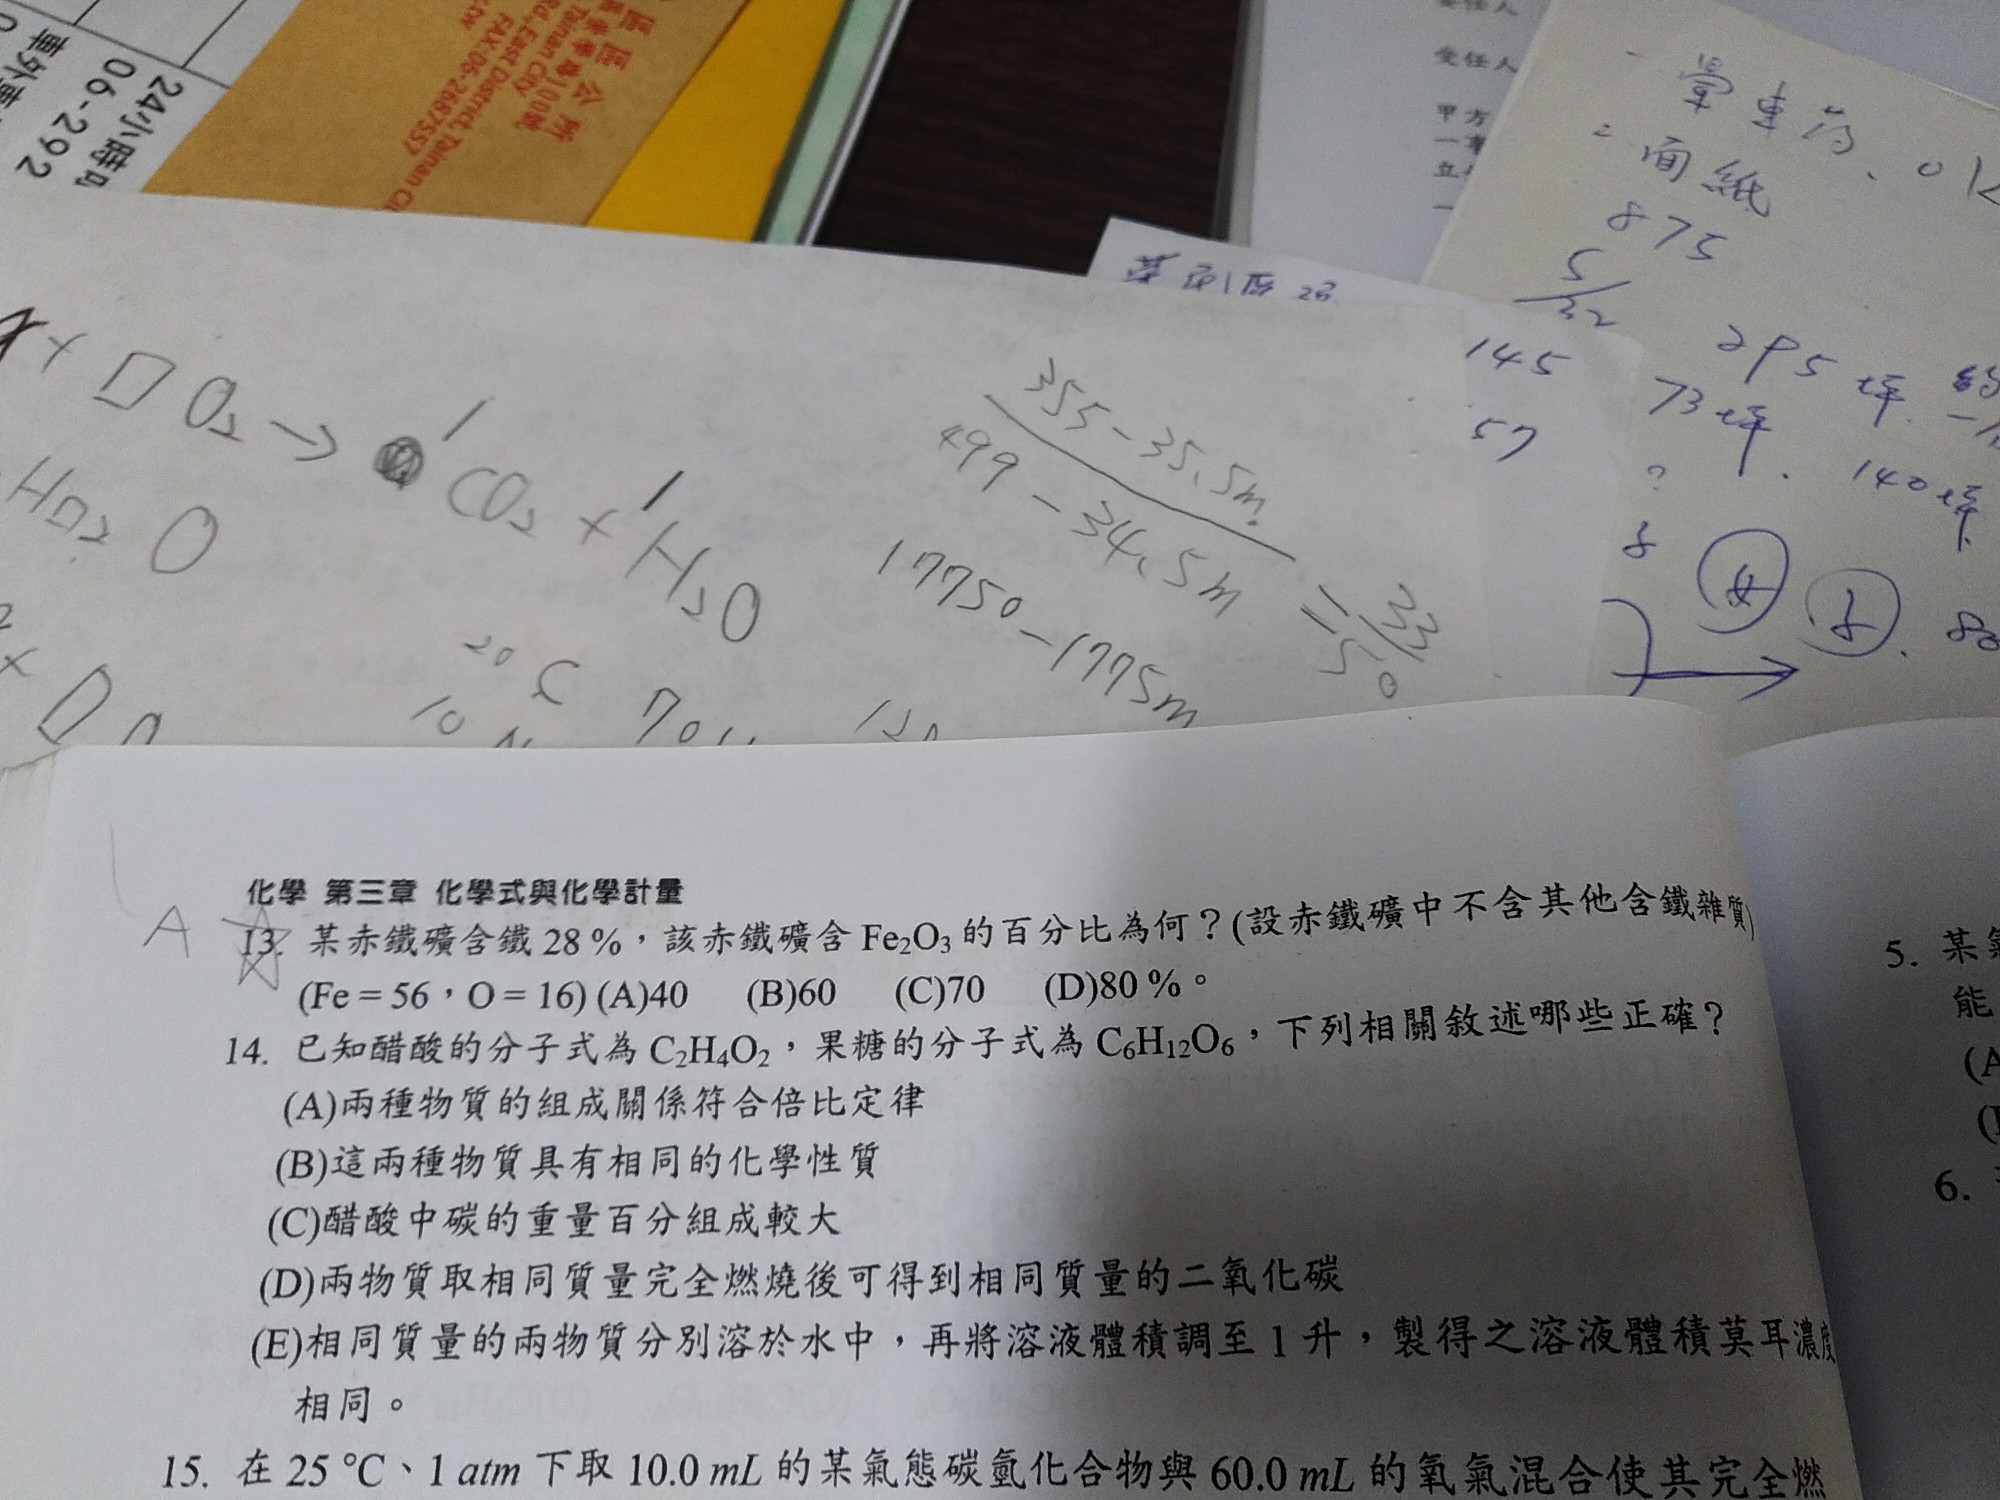 24小時
06-292
區公所
100號
Tainan City
Rd., East District, Tainan Ci
FAX:06-2687557
受任人
受任人
甲方
一
立
一
暈車药. ok
二 面紙
875
5/32
295坪
73坪. 140坪
?
145
57
女 子.
+ □ O₂ → 1 CO₂ + 1 H₂O
355-35.5m
499-34.5m
= 33/50
17750-1775m
A
化學 第三章 化學式與化學計量
13. 某赤鐵礦含鐵 28 %,該赤鐵礦含 Fe₂O₃ 的百分比為何?(設赤鐵礦中不含其他含鐵雜質)
(Fe = 56,O = 16) (A)40 (B)60 (C)70 (D)80 %。
14. 已知醋酸的分子式為 C₂H₄O₂,果糖的分子式為 C₆H₁₂O₆,下列相關敘述哪些正確?
(A)兩種物質的組成關係符合倍比定律
(B)這兩種物質具有相同的化學性質
(C)醋酸中碳的重量百分組成較大
(D)兩物質取相同質量完全燃燒後可得到相同質量的二氧化碳
(E)相同質量的兩物質分別溶於水中,再將溶液體積調至 1 升,製得之溶液體積莫耳濃度
相同。
15. 在 25 °C、1 atm 下取 10.0 mL 的某氣態碳氫化合物與 60.0 mL 的氧氣混合使其完全燃
5. 某
能
(A
6.